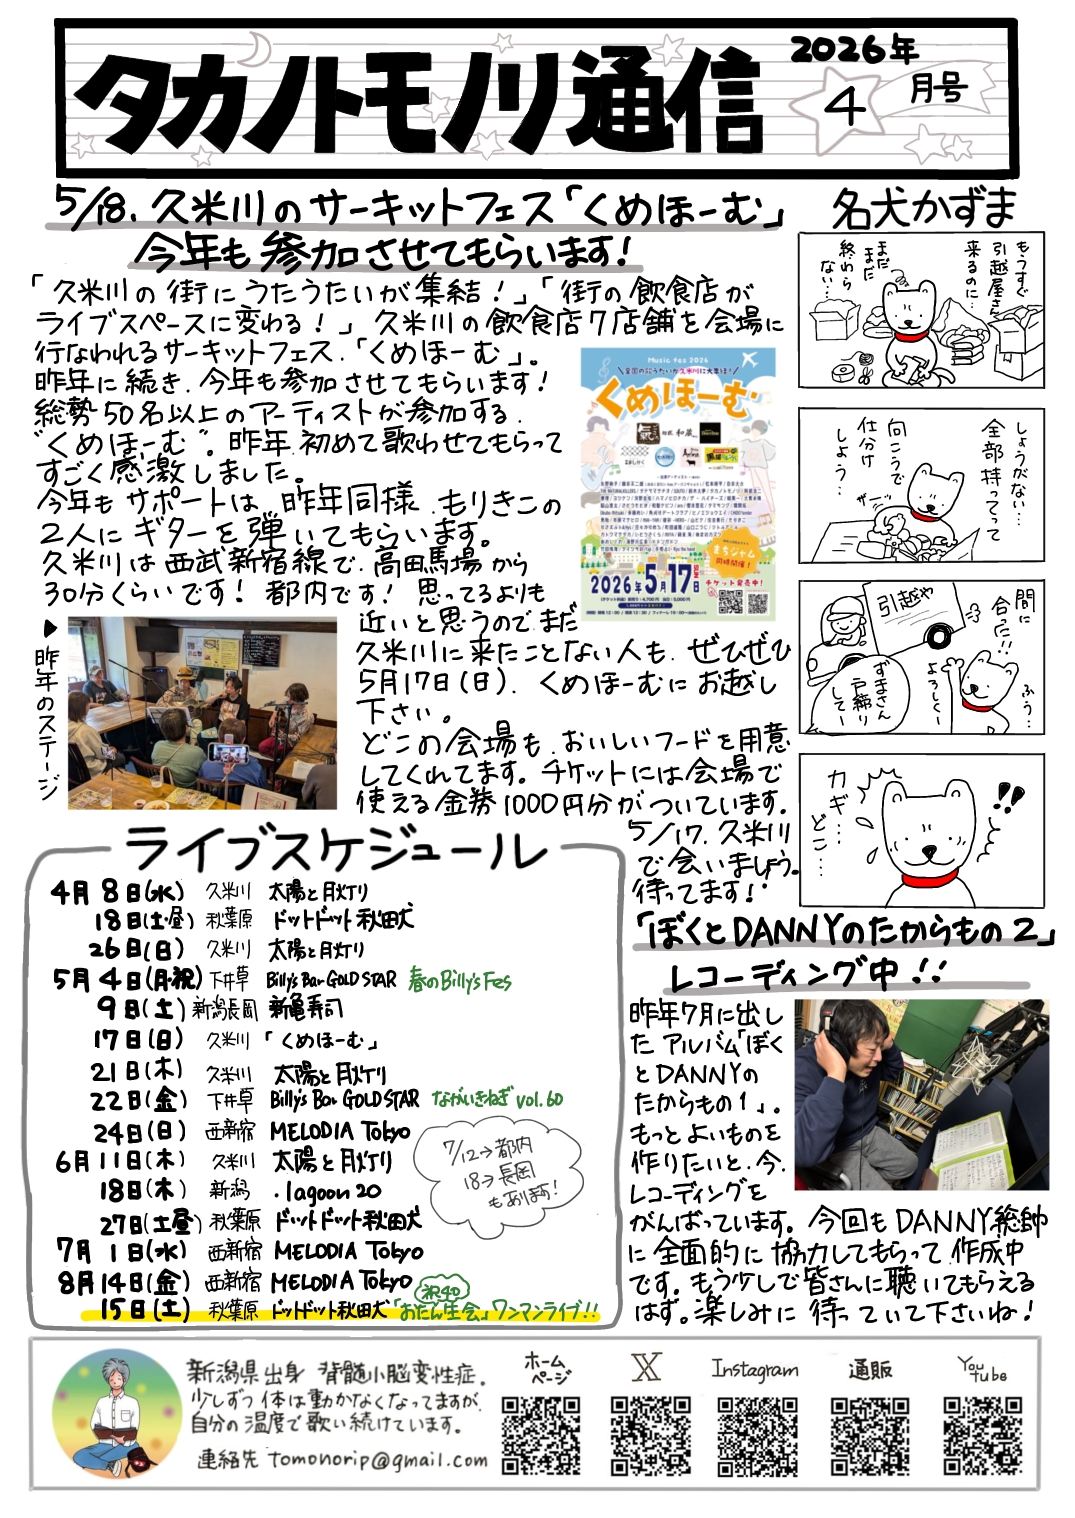 タカノトモノリ通信
2026年
4
月号
5/18.久米川のサーキットフェス「くめほーむ」
今年も参加させてもらいます!
「久米川の街にうたうたいが集結!」「街の飲食店が
ライブスペースに変わる!」久米川の飲食店7店舗を会場に
行なわれるサーキットフェス.「くめほーむ」。
昨年に続き.今年も参加させてもらいます!
総勢50名以上のアーティストが参加する.
“くめほーむ”。昨年.初めて歌わせてもらって
すごく感激しました。
今年もサポートは、昨年同様.もりきこの
2人にギターを弾いてもらいます。
久米川は西武新宿線で.高田馬場から
30分くらいです!都内です!思ってるよりも
近いと思うので.まだ
久米川に来たことない人も.ぜひぜひ
5月17日(日).くめほーむにお越し
下さい。
どこの会場も.おいしいフードを用意
してくれてます。チケットには会場で
使える金券1000円分がついています。
5/17.久米川
で会いましょう。
待ってます!
▶昨年のステージ
Music fes 2026
全国の唄うたいが久米川に大集合!
くめほーむ
まちジャム
同時開催!
2026年5月17日
SUN
チケット発売中!
名犬かずま
もうすぐ
引越屋さん
来るのに…
まだ
まだ
終わら
ない…
しょうがない…
全部持ってって
向こうで
仕分け
しよう…
ザーッ
間に
合った!!
引越や
ずまさん
戸締り
してー
よろしくー
ふぅ…
!!
カギ…
どこ…
ライブスケジュール
4月8日(水) 久米川 太陽と月灯り
18日(土・昼) 秋葉原 ドットドット秋田犬
26日(日) 久米川 太陽と月灯り
5月4日(月・祝) 下井草 Billy's Bar GOLD STAR 春のBilly's Fes
9日(土) 新潟長岡 新亀寿司
17日(日) 久米川 「くめほーむ」
21日(木) 久米川 太陽と月灯り
22日(金) 下井草 Billy's Bar GOLD STAR ながいきねぎ vol.60
24日(日) 西新宿 MELODIA Tokyo
6月11日(木) 久米川 太陽と月灯り
18日(木) 新潟 .lagoon20
27日(土昼) 秋葉原 ドットドット秋田犬
7月1日(水) 西新宿 MELODIA Tokyo
8月14日(金) 西新宿 MELODIA Tokyo
祝40
15日(土) 秋葉原 ドットドット秋田犬「おたん生会」ワンマンライブ!!
7/12→都内
18→長岡
もあります!
「ぼくとDANNYのたからもの2」
レコーディング中!!
昨年7月に出し
たアルバム「ぼく
とDANNYの
たからもの1」。
もっとよいものを
作りたいと.今.
レコーディングを
がんばっています。今回もDANNY総帥
に全面的に協力してもらって.作成中
です。もう少しで皆さんに聴いてもらえる
はず。楽しみに待っていて下さいね!
新潟県出身 脊髄小脳変性症。
少しずつ体は動かなくなってますが.
自分の温度で歌い続けています。
連絡先 tomonorip@gmail.com
ホーム
ページ
X
Instagram
通販
You
tube